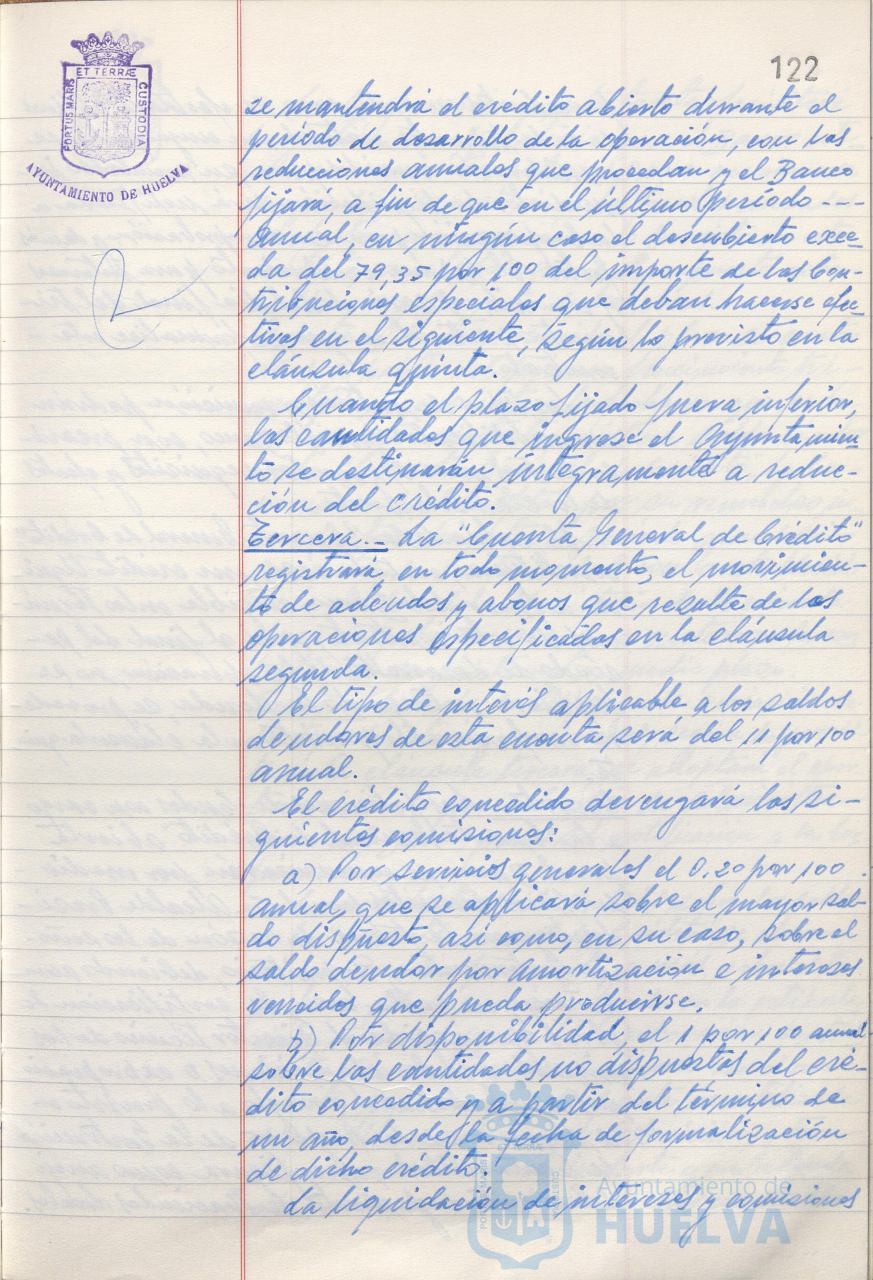 122
PORTUS MARIS ET TERRÆ CUSTODIA
AYUNTAMIENTO DE HUELVA
se mantendrá el crédito abierto durante el
período de desarrollo de la operación, con las
reducciones anuales que procedan y el Banco
fijará, a fin de que en el último período ---
anual, en ningún caso el descubierto exce-
da del 79,35 por 100 del importe de las Con-
tribuciones especiales que deban hacerse efec-
tivas en el siguiente, según lo previsto en la
cláusula quinta.
Cuando el plazo fijado fuera inferior,
las cantidades que ingrese el Ayuntamien-
to se destinarán íntegramente a reduc-
ción del crédito.
Tercera.- La "Cuenta General de Crédito"
registrará, en todo momento, el movimien-
to de adeudos y abonos que resulte de las
operaciones especificadas en la cláusula
segunda.
El tipo de interés aplicable a los saldos
deudores de esta cuenta será del 11 por 100
anual.
El crédito concedido devengará las si-
guientes comisiones:
a) Por servicios generales el 0,20 por 100
anual, que se aplicará sobre el mayor sal-
do dispuesto, así como, en su caso, sobre el
saldo deudor por amortización e intereses
vencidos que pueda producirse.
b) Por disponibilidad, el 1 por 100 anual
sobre las cantidades no dispuestas del cré-
dito concedido y a partir del término de
un año, desde la fecha de formalización
de dicho crédito.
La liquidación de intereses y comisiones
Ayuntamiento de
HUELVA